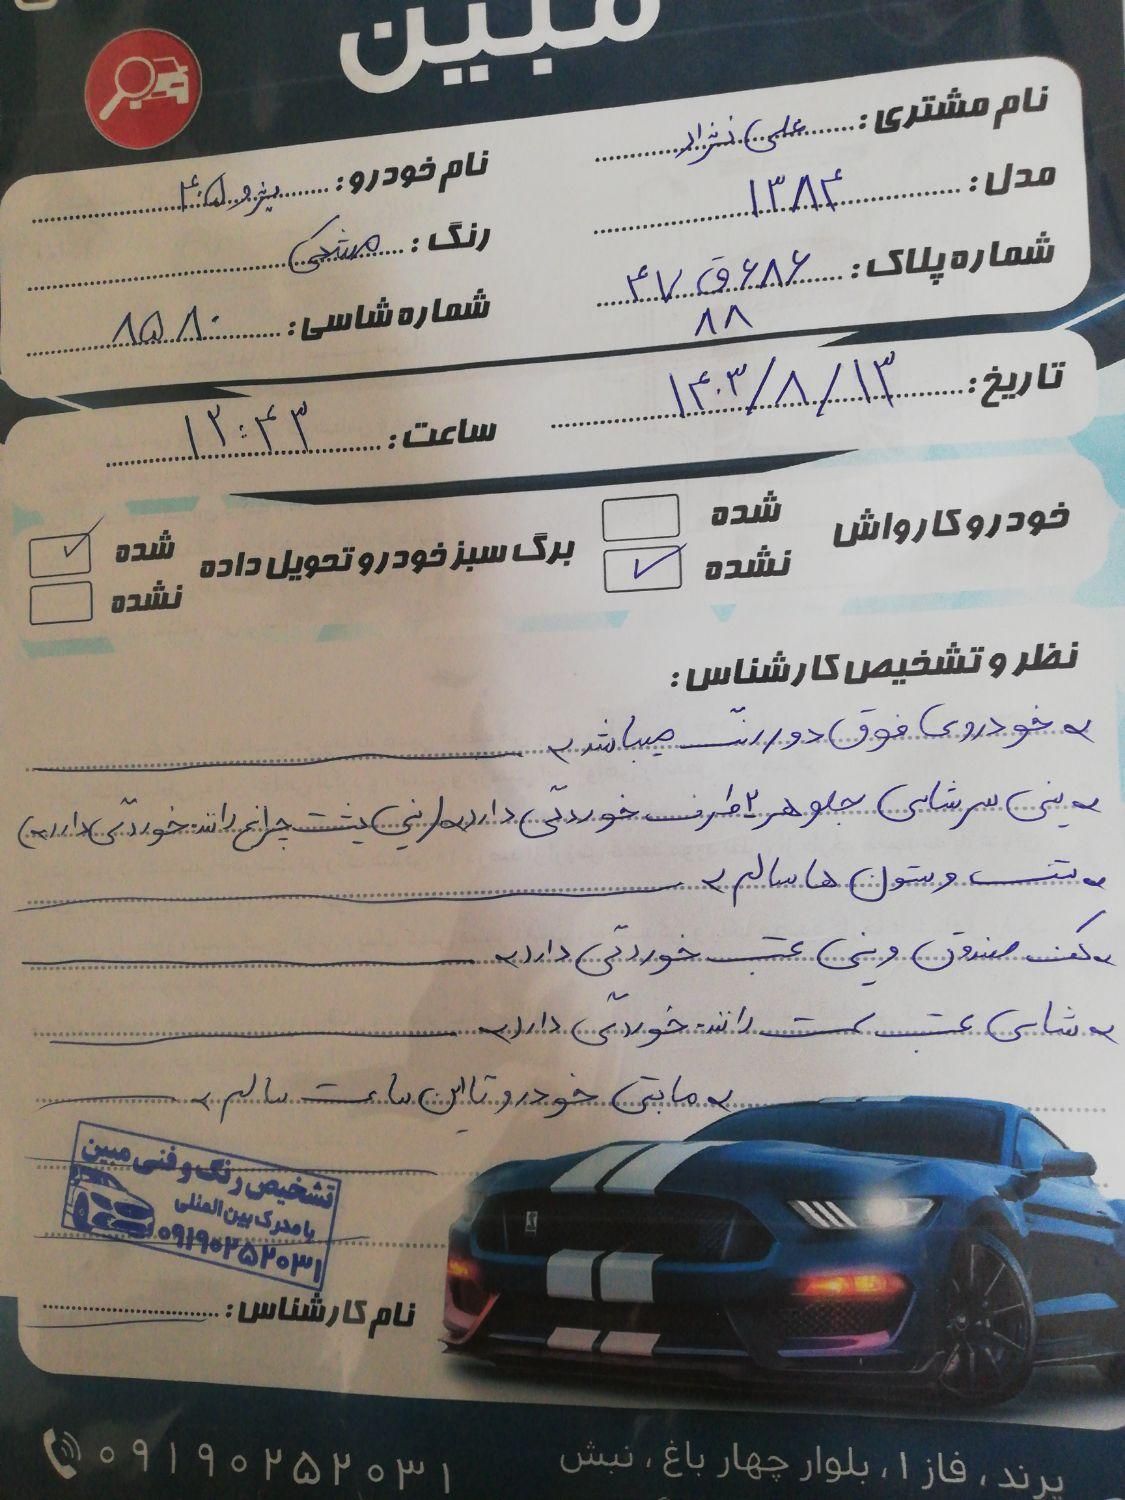 مبین
نام مشتری: علی نژاد
نام خودرو: پژو ۴۰۵
مدل: ۱۳۸۴
رنگ: مشکی
شماره پلاک: ۶۸۶ق۴۷
۸۸
شماره شاسی: ۸۵۸۰
تاریخ: ۱۴۰۳/۸/۱۳
ساعت: ۱۲:۴۳
خودرو کارواش
شده
نشده
برگ سبز خودرو تحویل داده
شده
نشده
نظر و تشخیص کارشناس:
خودروی فوق دور رنگ میباشد
سینی سرشاسی جلو هر ۲ طرف خوردگی دارد (سینی پشت چراغ راننده خوردگی دارد)
ستون ها سالم
کف صندوق و سینی عقب خوردگی دارد
شاسی عقب سمت راننده خوردگی دارد
مابقی خودرو تا این ساعت سالم
تشخیص رنگ و فنی مبین
با مدرک بین المللی
۰۹۱۹۰۲۵۲۰۳۱
نام کارشناس:
پرند، فاز ۱، بلوار چهار باغ، نبش
۰۹۱۹۰۲۵۲۰۳۱